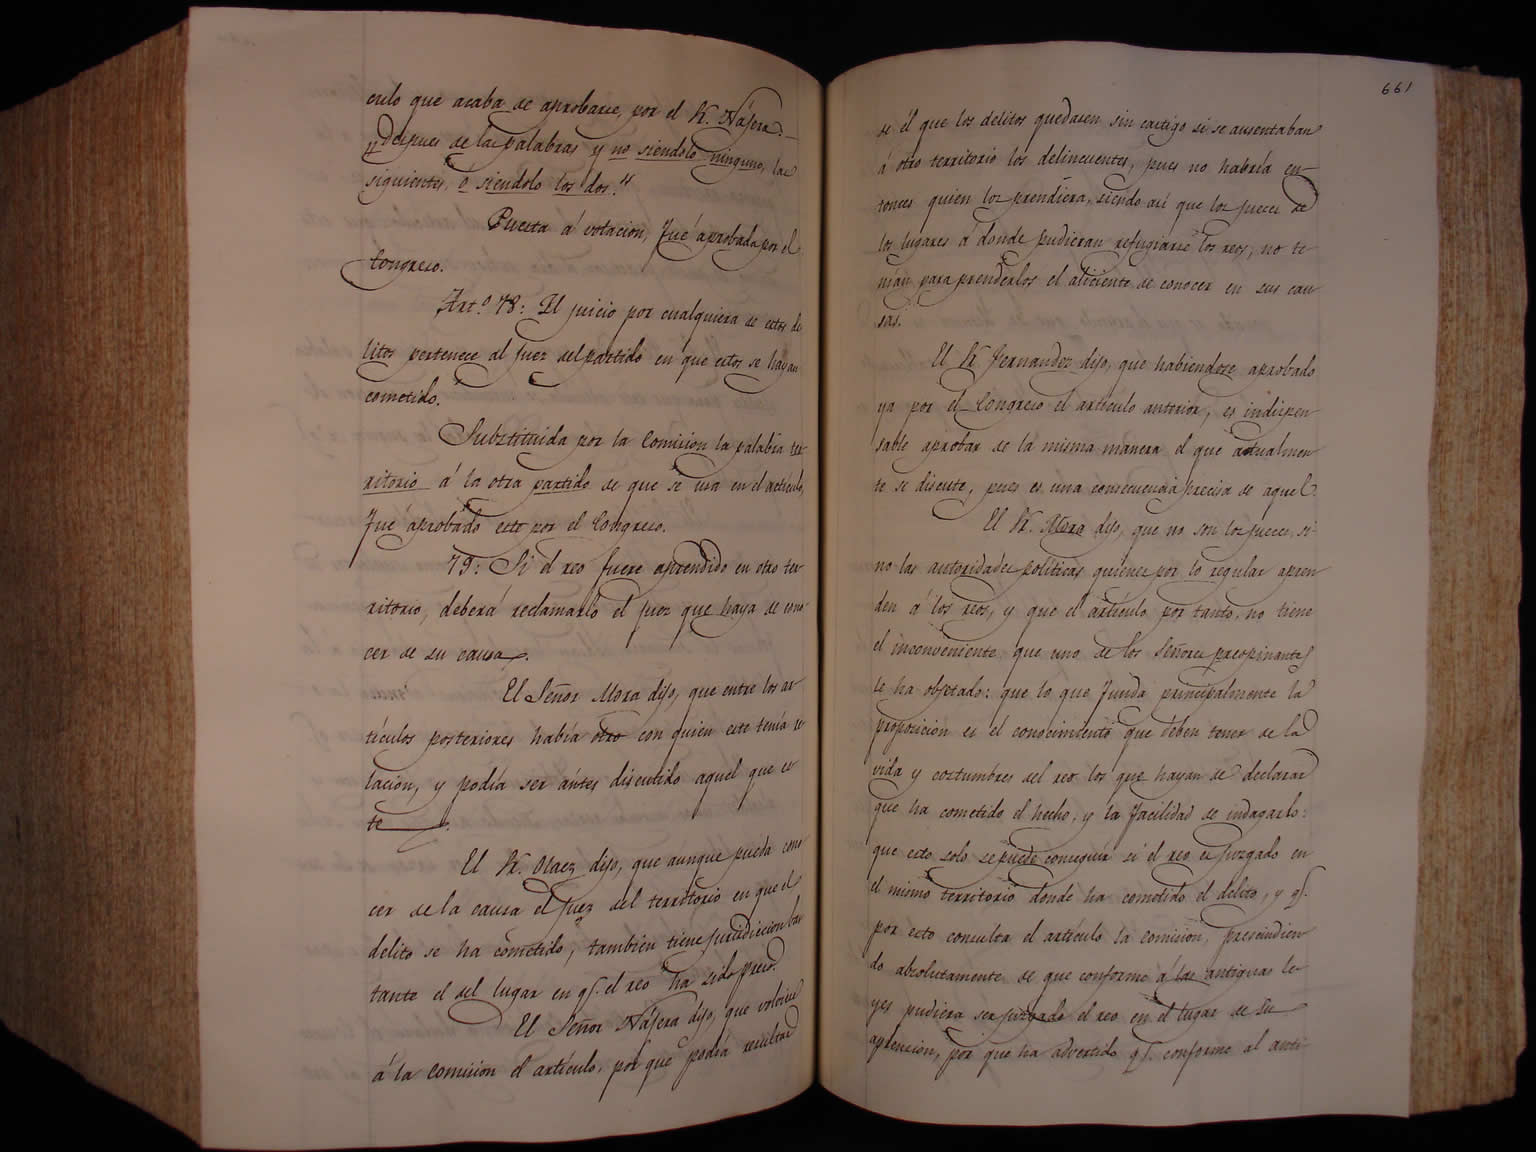 culo que acaba de aprobarse, por el Sr. Nájera.
"Despues de las palabras y no siendolo ninguno, las
siguientes, ó siendolo los dos."
Puesta á votacion, fué aprobada por el
Congreso.
Art.º 78: El juicio por cualquiera de estos de
litos pertenece al juez del partido en que estos se hayan
cometido.
Substituida por la Comision la palabra ter-
ritorio á la otra partido de que se usa en el artículo,
fué aprobado este por el Congreso.
79: Si el reo fuere aprendido en otro ter
ritorio, deberá reclamarlo el juez que haya de cono
cer de su causa.
El Señor Mora dijo, que entre los ar
tículos posteriores había otro con quien este tenía re
lacion, y podía ser ántes discutido aquel que es
te.
El Sr. Olaez dijo, que aunque pueda cono
cer de la causa el juez del territorio en que el
delito se ha cometido, tambien tiene jurisdiccion bas
tante el del lugar en q.e el reo ha sido preso.
El Señor Nájera dijo, que volviese
á la Comision el artículo, por que podrá resultar
661
de él que los delitos quedasen sin castigo si se ausentaban
á otro territorio los delincuentes, pues no habría en-
tonces quien los prendiera, siendo así que los jueces de
los lugares á donde pudieran refugiarse los reos, no te
nían para prenderlos el aliciente de conocer en sus cau
sas.
El Sr Fernandez dijo, que habiendose aprobado
ya por el Congreso el artículo anterior, es indispen
sable aprobar de la misma manera el que actualmen
te se discute, pues es una consecuencia precisa de aquel.
El Sr. Mora dijo, que no son los jueces, si-
no las autoridades políticas quienes por lo regular apren
den á los reos, y que el artículo por tanto, no tiene
el inconveniente que uno de los Señores preopinantes
le ha objetado: que lo que funda principalmente la
proposicion es el conocimiento que deben tener de la
vida y costumbres del reo los que hayan de declarar
que ha cometido el hecho, y la facilidad de indagarlo:
que esto solo se puede conseguir si el reo es juzgado en
el mismo territorio donde ha cometido el delito, y q.e
por esto consulta el artículo la comision, prescindien
do absolutamente de que conforme á las antiguas le-
yes pudiera ser juzgado el reo en el lugar de su
aprencion, por que ha advertido q.e conforme al anti-